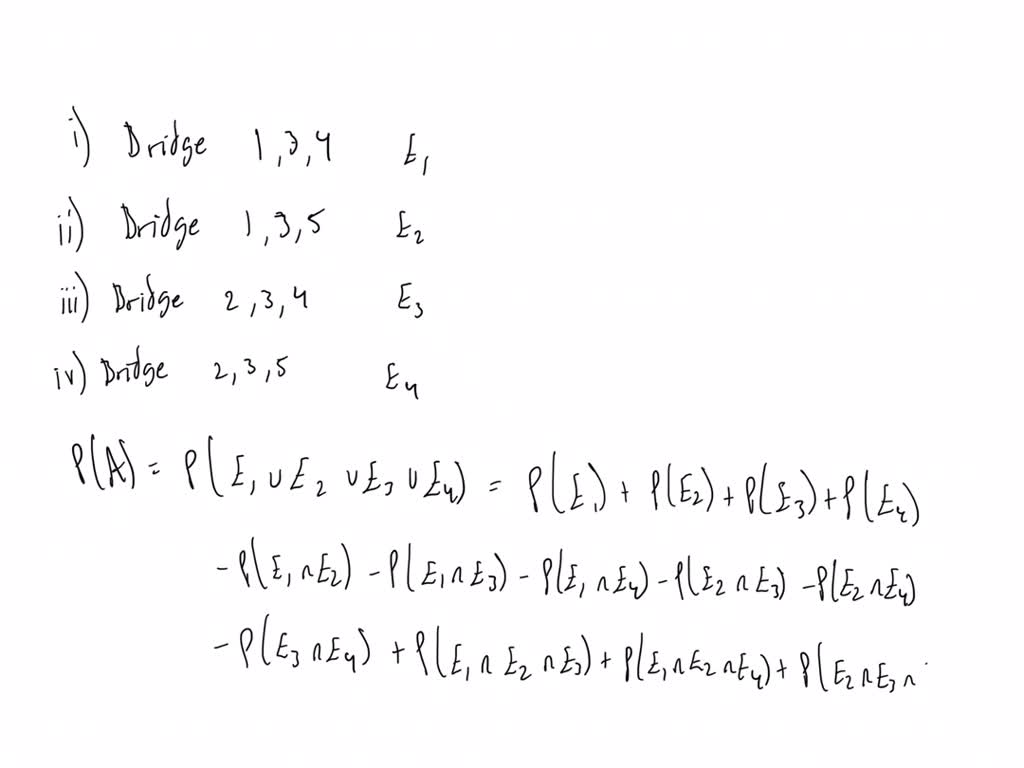 i) Bridge 1,3,4 E₁
ii) Bridge 1,3,5 E₂
iii) Bridge 2,3,4 E₃
iv) Bridge 2,3,5 E₄
P(A) = P(E₁ ∪ E₂ ∪ E₃ ∪ E₄) = P(E₁) + P(E₂) + P(E₃) + P(E₄)
- P(E₁ ∩ E₂) - P(E₁ ∩ E₃) - P(E₁ ∩ E₄) - P(E₂ ∩ E₃) - P(E₂ ∩ E₄)
- P(E₃ ∩ E₄) + P(E₁ ∩ E₂ ∩ E₃) + P(E₁ ∩ E₂ ∩ E₄) + P(E₂ ∩ E₃ ∩